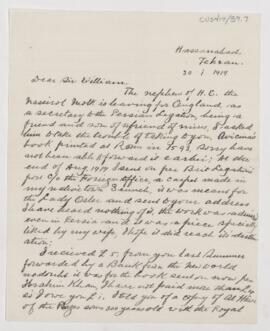 CUS417/39.7
Hassanabad.
Tehran.
20 i 1919
Dear Sir William,
The nephew of H.E. the
Nasirol Molk is leaving for England, as
a secretary to the Persian Legation, being a
friend and son of a friend of mine, I asked
him to take the trouble of taking to you Avicenna's
book printed at Rom in 1593. Sorry have
not been able to forward it earlier; At the
end of Aug 1917 I sent you per Brit. Legation
p or c/o the Foreign office, a carpet made in
my native town Senneh, it was means for
the Lady Osler and sent to your address
I have heard nothing of it. the work was admired
even in Persia and it was a piece specially
liked by my wife I hope it did reach its destin-
ation;
I recieved £5 from you last Summer
forwarded by a Bank from the New world
no doubt it was for the book sent to you per
Ibrahim Khan, I have not paid more than £4
so I owe you £1. I told you of a copy of Al
of the years old with the Royal